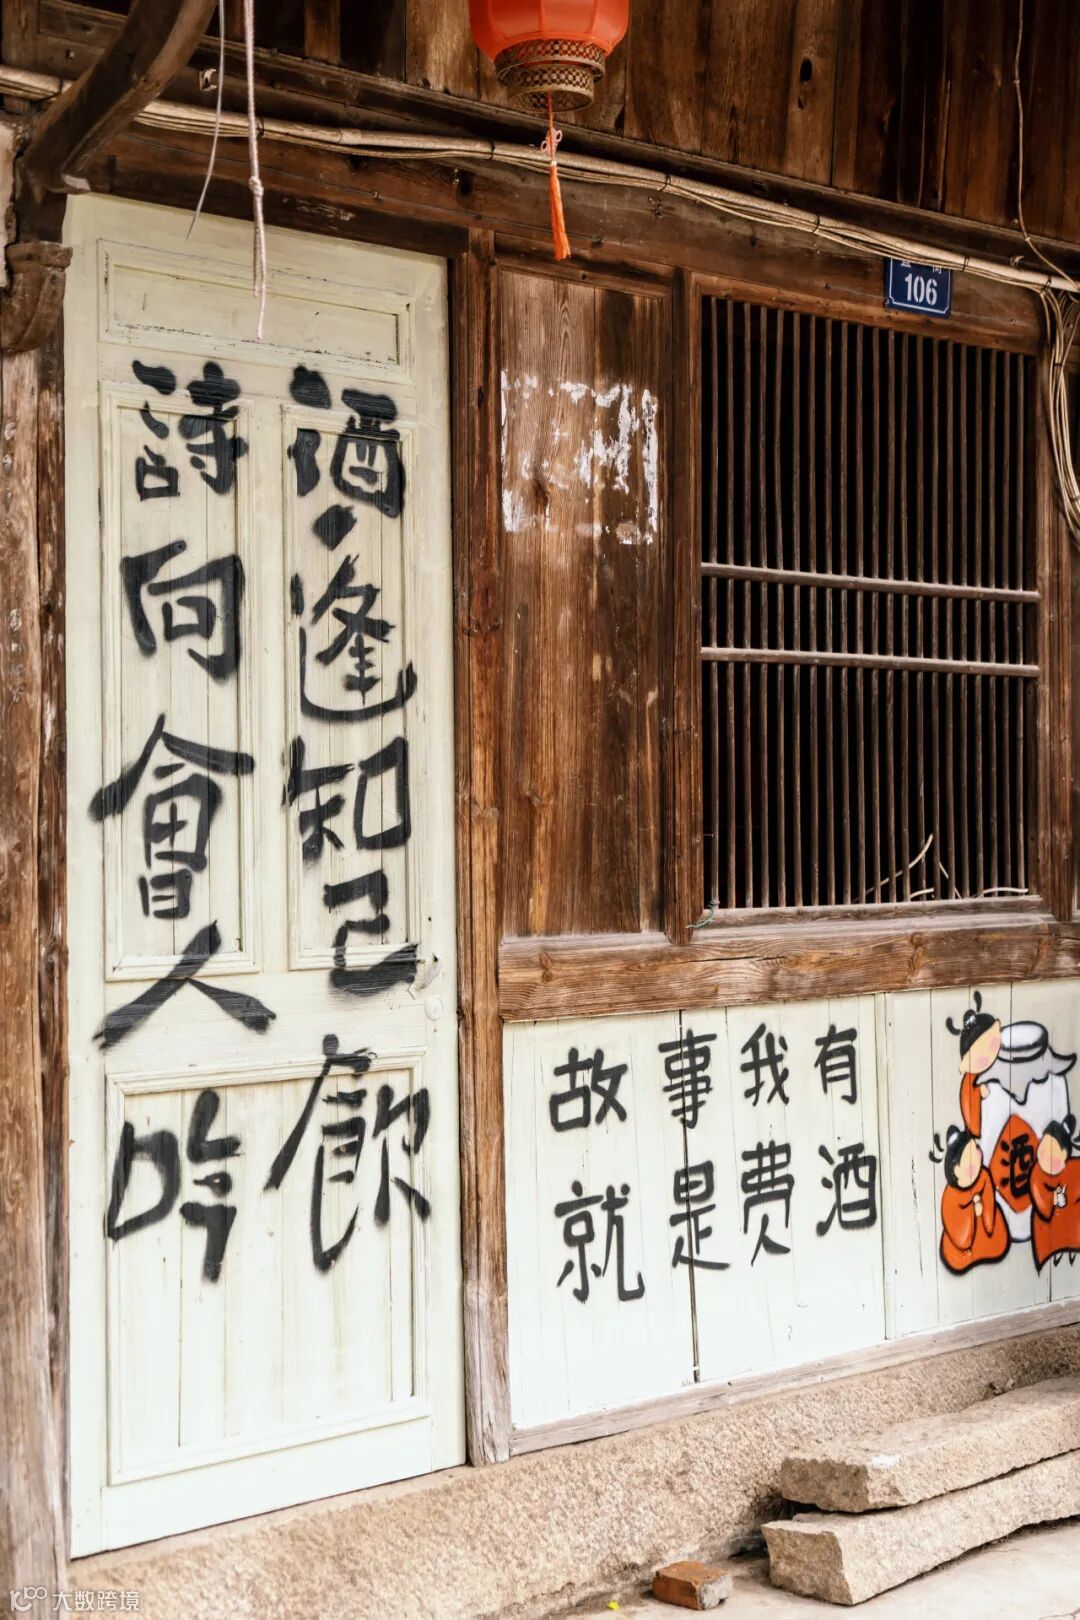 酒逢知己飲
詩向會人吟
106
故事我有
就是费酒
酒
大数跨境